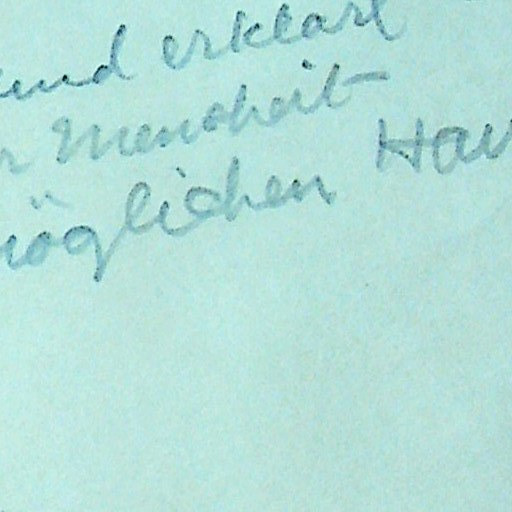 und erklärt
r Menschheit
möglichen Hau